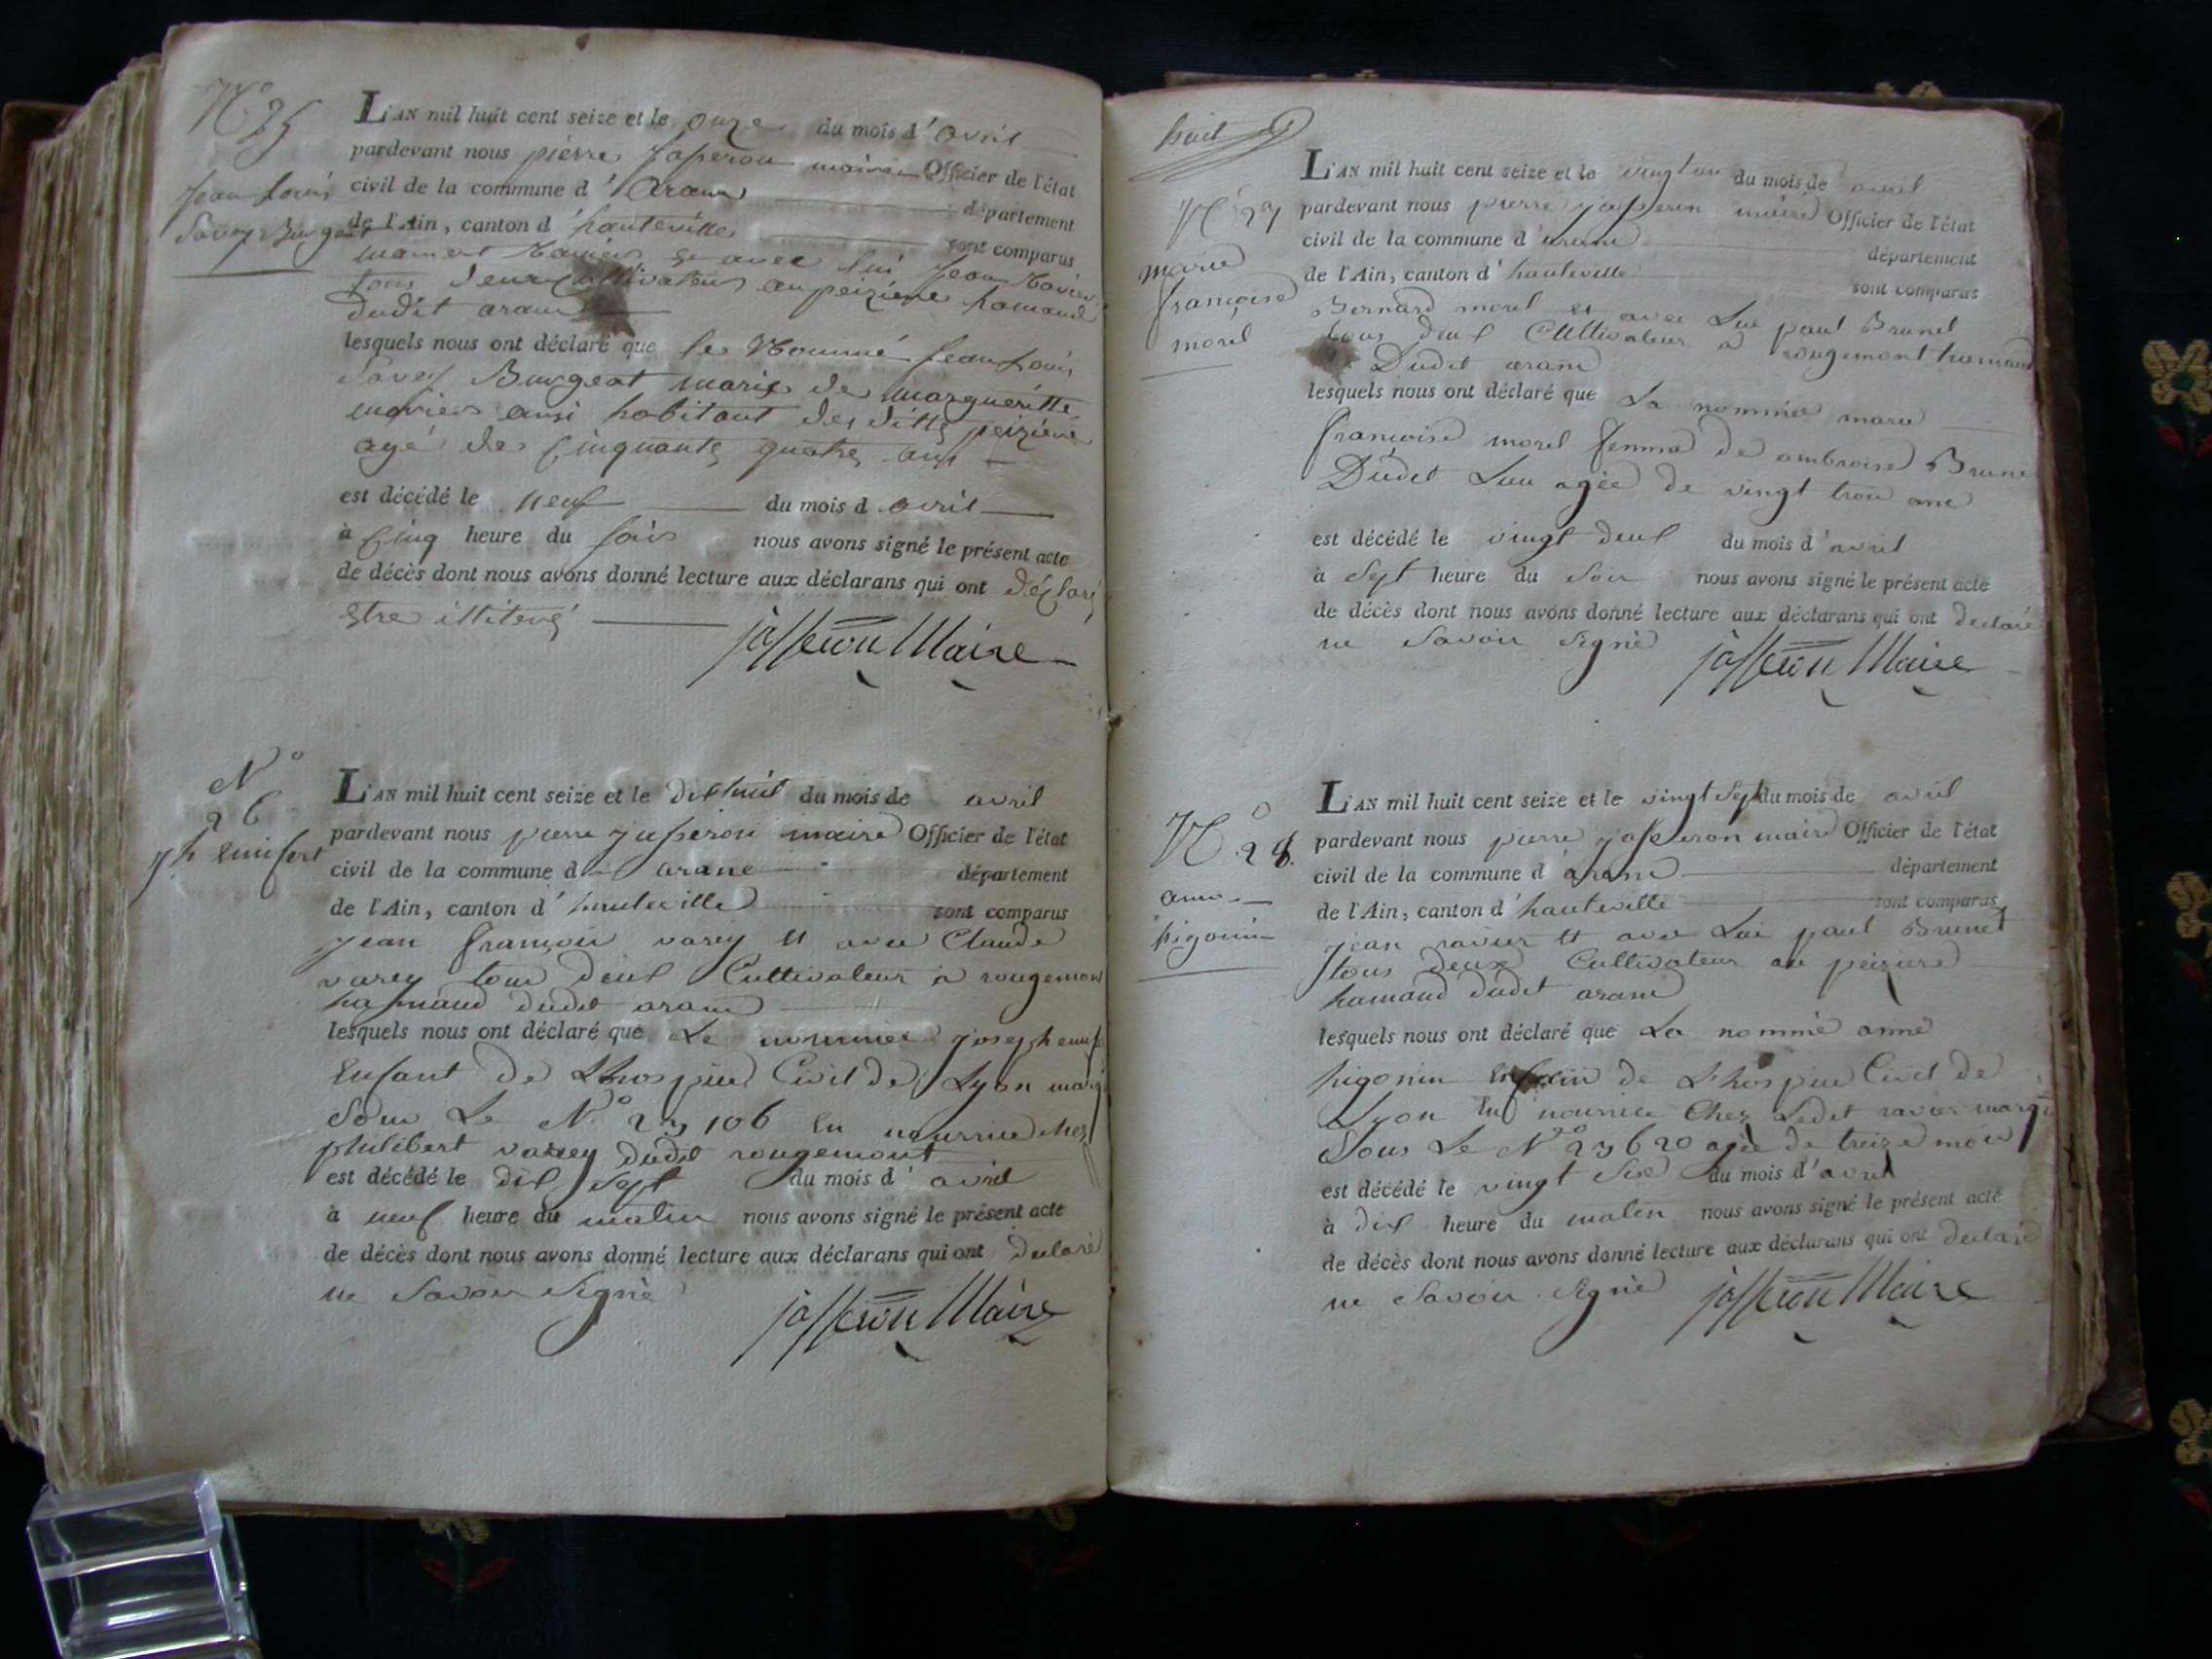 N° 25
Jean Louis
Savey Burgeat
L'AN mil huit cent seize et le onze du mois d'avril
pardevant nous pierre jasseron maire Officier de l'état
civil de la commune d'aranc département
de l'Ain, canton d'hauteville sont comparus
et avec lui Jean
tous deux Cultivateurs au peizieue hamaud
dudit aranc
lesquels nous ont déclaré que le Nommé Jean Louis
Savey Burgeat marié de marguéritte
ausi habitant des ditts peiziéue
agé de Cinquante quatre ans
est décédé le neuf du mois d avril
à Cinq heure du soir nous avons signé le présent acte
de décès dont nous avons donné lecture aux déclarans qui ont déclaré
estre illiteré
jasseron Maire
N°
26
jh
L'AN mil huit cent seize et le dixhuit du mois de avril
pardevant nous pierre jasseron maire Officier de l'état
civil de la commune d aranc département
de l'Ain, canton d'hauteville sont comparus
jean françois varey et avec Claude
varey tous deux Cultivateur à rougemont
hamaud dudit aranc
lesquels nous ont déclaré que Le nommée joseph
Enfant de Lhospice Civil de Lyon marq
Sous Le N° 23106 En nourrice chez
philibert varey dudit rougemont
est décédé le dix sept du mois d'avril
à neuf heure du matin nous avons signé le présent acte
de décès dont nous avons donné lecture aux déclarans qui ont declaré
ne Savoir Signé
jasseron Maire
huit
N° 27
marie
françoise
morel
L'AN mil huit cent seize et le du mois de avril
pardevant nous pierre jasseron maire Officier de l'état
civil de la commune d'aranc département
de l'Ain, canton d'hauteville sont comparus
Bernard morel et avec Lui paul Brunet
tous deux Cultivateur à rougemont hamaud
Dudit aranc
lesquels nous ont déclaré que La nommée marie
françoise morel femme de ambroise Brunet
Dudit Lieu agée de vingt trois ans
est décédé le vingt deux du mois d'avril
à Sept heure du Soir nous avons signé le présent acte
de décès dont nous avons donné lecture aux déclarans qui ont declaré
ne Savoir Signé
jasseron Maire
N° 28.
anne
pigonin
L'AN mil huit cent seize et le vingt Sept du mois de avril
pardevant nous pierre jasseron maire Officier de l'état
civil de la commune d'aranc département
de l'Ain, canton d'hauteville sont comparus
jean ravier et avec Lui paul Brunet
tous deux Cultivateur au peizieue
hamaud dudit aranc
lesquels nous ont déclaré que La nommé anne
pigonin de L'hospice Civil de
Lyon En nourrice Chez Ledit ravier marq
Sous Le N° 23620 agée de treize mois
est décédé le vingt Six du mois d'avril
à dix heure du matin nous avons signé le présent acte
de décès dont nous avons donné lecture aux déclarans qui ont declaré
ne Savoir Signé
jasseron Maire